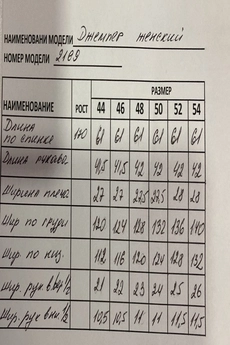 НАИМЕНОВАНИ МОДЕЛИ Джемпер женский
НОМЕР МОДЕЛИ 2189
НАИМЕНОВАНИЕ РОСТ РАЗМЕР
44 46 48 50 52 54
Длина по спинке 170 61 61 61 61 61 61
Длина рукава 41,5 41,5 42 42 42 42
Ширина плеча 27 27 27,5 27,5 28 28
Шир. по груди 120 124 128 132 136 140
Шир. по низ. 112 116 120 124 128 132
Шир. рук вверх 1/2 21 22 23 24 25 26
Шир. рук вни. 1/2 10,5 10,5 11 11 11,5 11,5